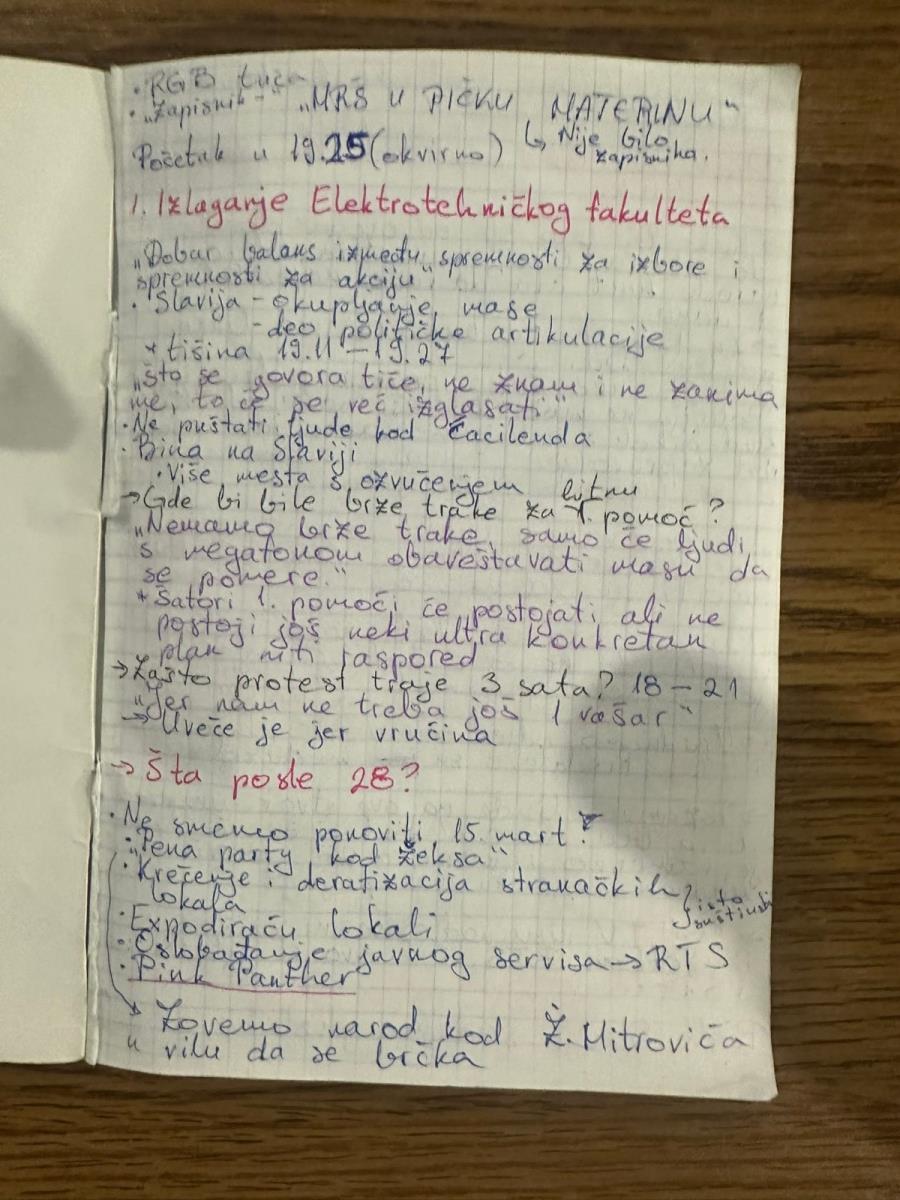 · RGB tuča
· „Zapisnik" - „MRŠ U PIČKU MATERINU"
↳ Nije bilo
zapisnika.
Početak u 19.25 (okvirno)
1. Izlaganje Elektrotehničkog fakulteta
„Dobar balans između spremnosti za izbore i
spremnosti za akciju"
· Slavija - okupljanje mase
- deo političke artikulacije
* tišina 19.11 — 19.27
„što se govora tiče, ne znam i ne zanima
me, to će se već izglasati"
· Ne puštati ljude kod Ćacilenda
· Bina na Slaviji
· Više mesta s ozvučenjem
→ Gde bi bile brze trake za hitnu 1. pomoć?
„Nemamo brze trake, samo će ljudi
s megafonom obaveštavati masu da
se pomere."
* Šatori 1. pomoći će postojati, ali ne
postoji još neki ultra konkretan
plan niti raspored
→ Zašto protest traje 3 sata? 18 — 21
„Jer nam ne treba još 1 vašar"
→ Uveče je jer vrućina
→ Šta posle 28?
· Ne smemo ponoviti 15. mart?
· „Pena party kod Žeksa"
· Krečenje i deratizacija stranačkih
lokala
isto suštinski
· Expodiraću lokali
· Oslobađanje javnog servisa → RTS
· Pink Panther
Zovemo narod kod Ž. Mitrovića
u vilu da se brčka